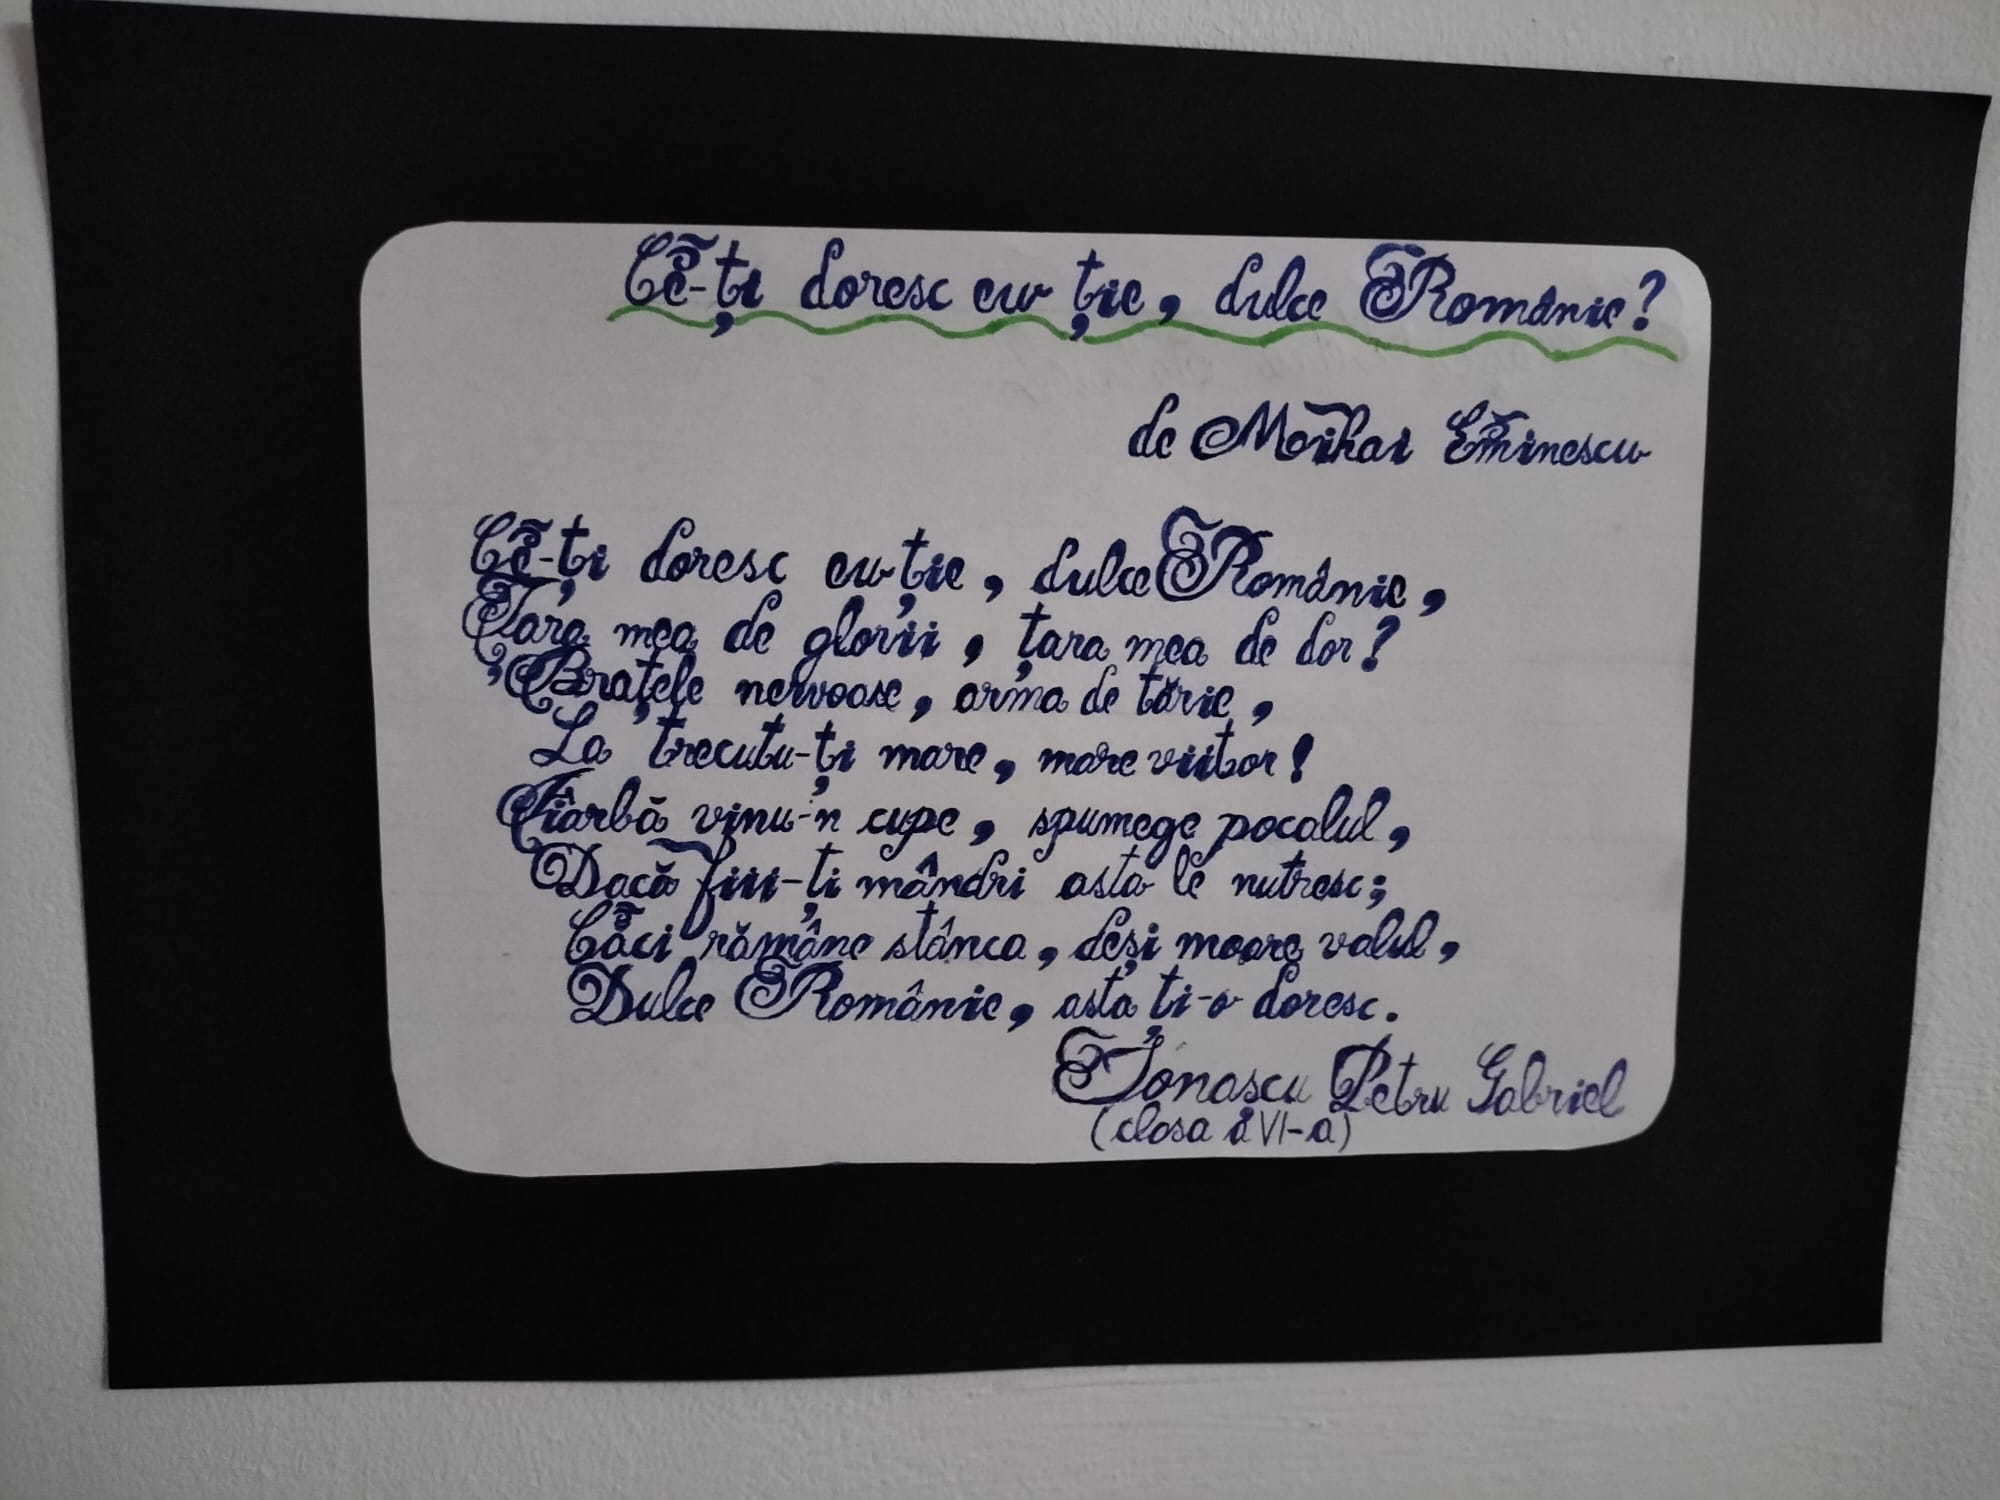 Ce-ți doresc eu ție, dulce Românie?
de Mihai Eminescu
Ce-ți doresc eu ție, dulce Românie,
Țara mea de glorii, țara mea de dor?
Brațele nervoase, arma de tărie,
La trecutu-ți mare, mare viitor!
Fiarbă vinu-n cupe, spumege pocalul,
Dacă fiii-ți mândri asta le nutresc;
Căci rămâne stânca, deși moare valul,
Dulce Românie, asta ți-o doresc.
Ionașcu Petru Gabriel
(clasa a VI-a)